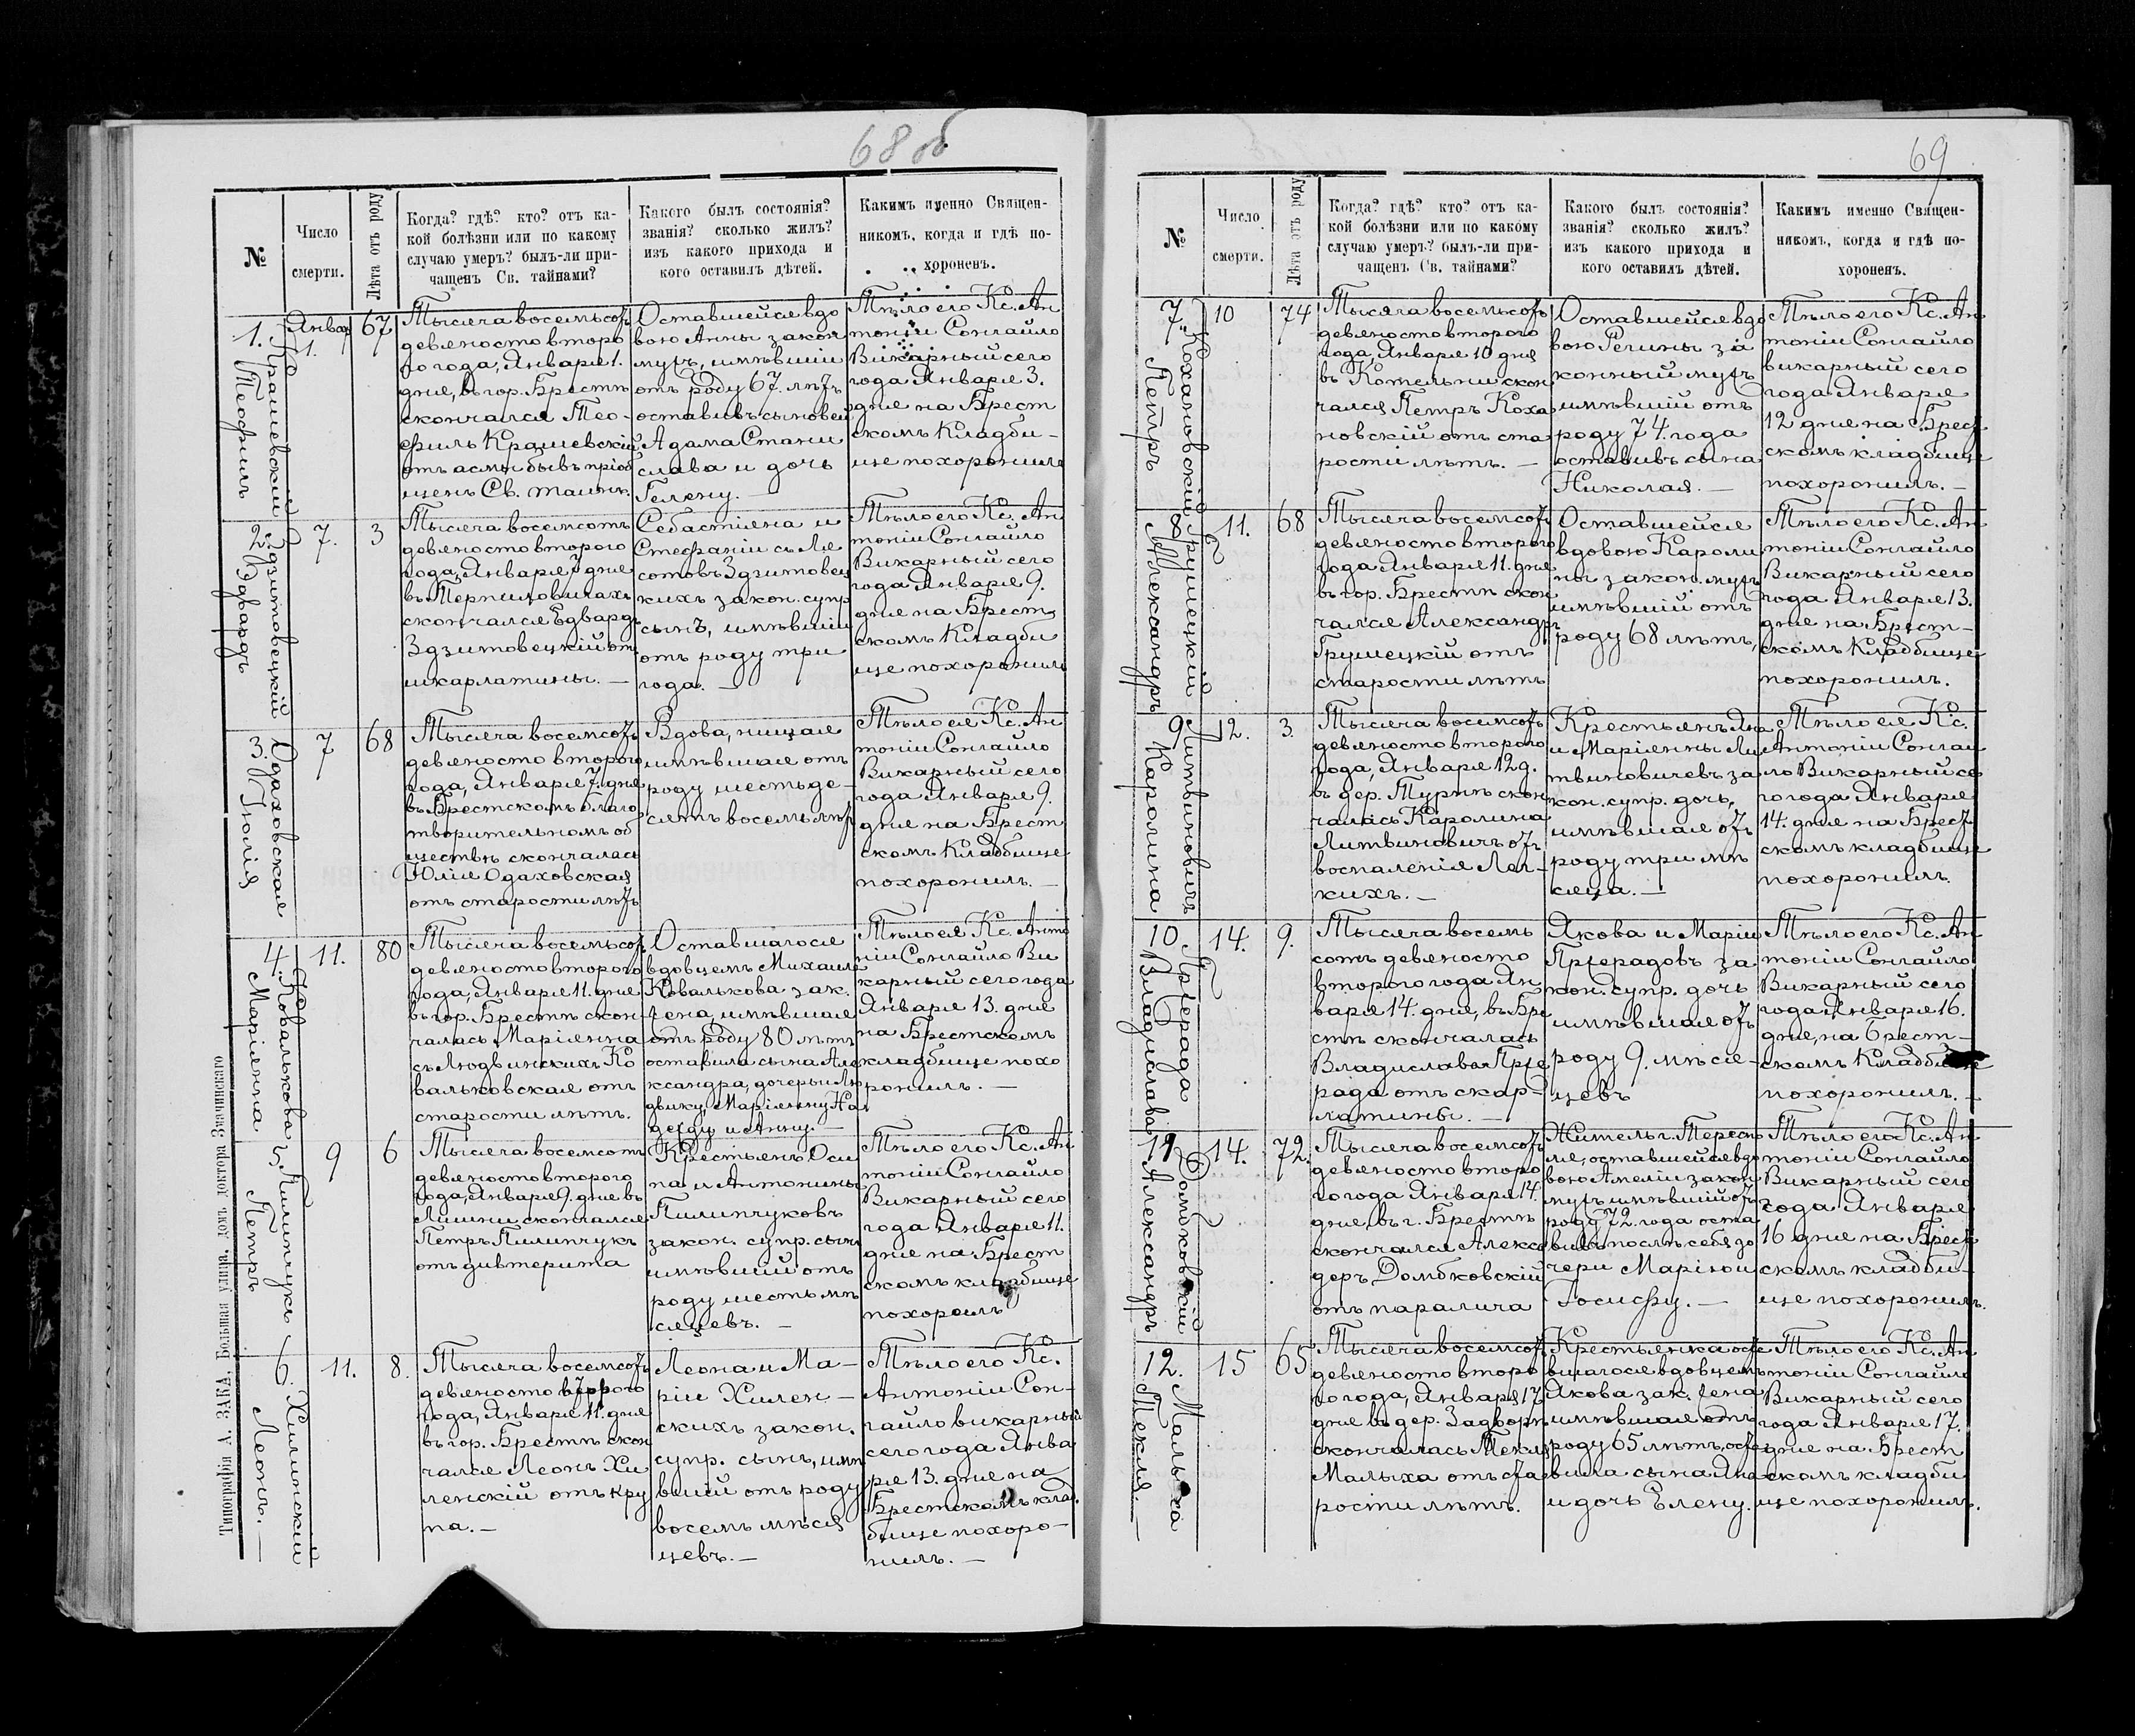 68 об
№
Число
смерти.
Лѣта отъ роду
Когда? гдѣ? кто? отъ ка-
кой болѣзни или по какому
случаю умеръ? былъ-ли при-
чащенъ Св. тайнами?
Какого былъ состоянія?
званія? сколько жилъ?
изъ какого прихода и
кого оставилъ дѣтей.
Какимъ именно Священ-
никомъ, когда и гдѣ по-
хороненъ.
1.
Крашевскій
Теофилъ
Январ
1.
67
Тысяча восемьсотъ
девяносто второ
го года, Января 1.
дня, въ гор. Брестѣ
скончался Тео-
филъ Крашевскій
отъ асмы бывъ пріоб
щенъ Св. таинъ.
Оставшейся вдо
вою Анны закон
мужъ, имѣвшій
отъ роду 67. лѣтъ
оставивъ сыновей
Адама Стани
слава и дочь
Гелену. —
Тѣло его Кс. Ан
тоній Сонгайло
Викарный сего
года Января 3.
дня на Брест
скомъ Кладби-
ще похоронилъ
2.
Здзитовецкій
Эдвардъ
7.
3
Тысяча восемсотъ
девяносто второго
года, Января 7 дня
въ
скончался Едвардъ
Здзитовецкій отъ
шкарлатины. —
Себастіяна и
Стефаніи съ Ля
сотовъ Здзитовец
кихъ закон. супр
сынъ, имѣвшій
отъ роду три
года. —
Тѣло его Кс. Ан
тоній Сонгайло
Викарный сего
года Января 9.
дня на Брест
скомъ Кладби
ще похоронилъ
3.
Одаховская
Юлія
7
68
Тысяча восемсотъ
девяносто второго
года, Января 7. дня
въ Брестскомъ благо
творительномъ об
ществѣ скончалась
Юлія Одаховская
отъ старости лѣтъ
Вдова, нищая
имѣвшая отъ
роду шестьде-
сятъ восемь лѣтъ
Тѣло ея Кс. Ан
тоній Сонгайло
Викарный сего
года Января 9.
дня на Брест
скомъ Кладбище
похоронилъ. —
4.
Ковалькова
Маріянна
11.
80
Тысяча восемьсот
девяносто второго
года, Января 11. дня
въ гор. Брестѣ скон-
чалась Маріянна
съ Людвинскихъ Ко
вальковская отъ
старости лѣтъ.
Оставшагося
вдовцемъ Михаила
Ковалькова зак.
жена, имѣвшая
отъ роду 80 лѣтъ
оставила сына Але
ксандра, дочерьи Лю
двику, Маріянну На
дежду и Анну. —
Тѣло ея Кс. Анто
ній Сонгайло Ви
карный сего года
Января 13. дня
на Брестскомъ
кладбище похо
ронилъ. —
5.
Пилипчукъ
Петръ
9
6
Тысяча восемсотъ
девяносто второго
года, Января 9. дня въ
скончался
Петръ Пилипчукъ
отъ дифтерита
Крестьянъ Оси
па и Антонины
Пилипчуковъ
закон. супр. сынъ
имѣвшій отъ
роду шесть мѣ
сяцевъ. —
Тѣло его Кс. Ан
тоній Сонгайло
Викарный сего
года Января 11.
дня на Брест
скомъ кладбище
похоронилъ
6.
Хилинскій
Леонъ. —
11.
8.
Тысяча восемсотъ
девяносто второго
года, Января 11. дня
въ гор. Брестѣ скон
чался Леонъ Хи
ленскій отъ кру
па. —
Леона и Ма-
ріи Хилен-
скихъ закон.
супр. сынъ, имѣ
вшій отъ роду
восемь мѣся
цевъ. —
Тѣло его Кс.
Антоній Сон-
гайло викарный
сего года Янва
ря 13. дня на
Брестскомъ клад.
бище похоро-
нилъ. —
Типографія А. ЗАКА. Большая улица, домъ доктора Значинскаго
69
№
Число
смерти.
Лѣта отъ роду
Когда? гдѣ? кто? отъ ка-
кой болѣзни или по какому
случаю умеръ? былъ-ли при-
чащенъ Св. тайнами?
Какого былъ состоянія?
званія? сколько жилъ?
изъ какого прихода и
кого оставилъ дѣтей.
Какимъ именно Священ-
никомъ, когда и гдѣ по-
хороненъ.
7.
Кохановскій
Петръ
10
74
Тысяча восемьсотъ
девяносто второго
года, Января 10 дня
въ Котельни скон
чался Петръ Коха
новскій отъ ста
рости лѣтъ. —
Оставшейся вдо
вою Регины за
конный мужъ
имѣвшій отъ
роду 74. года
оставивъ сына
Николая. —
Тѣло его Кс. Ан
тоній Сонгайло
викарный сего
года Января
12 дня на Брест
скомъ кладбище
похоронилъ. —
8.
Грушецкій
Александръ
11.
68
Тысяча восемсотъ
девяносто второго
года Января 11. дня
въ гор. Брестѣ скон
чался Александръ
Грушецкій отъ
старости лѣтъ
Оставшейся
вдовою Кароли
ны закон. мужъ
имѣвшій отъ
роду 68 лѣтъ,
Тѣло его Кс. Ан
тоній Сонгайло
Викарный сего
года Января 13.
дня на Брест-
скомъ Кладбище
похоронилъ.
9
Литвиновичъ
Каролина
12.
3.
Тысяча восемсотъ
девяносто второго
года, Января 12 д.
въ дер. Турнѣ скон
чалась Каролина
Литвиновичъ отъ
воспаленія Лег-
кихъ. —
Крестьянъ Яна
и Маріянны Ли
твиновичевъ за
кон. супр. дочь,
имѣвшая отъ
роду три мѣ
сяца. —
Тѣло ея Кс.
Антоній Сонгай
ло Викарный се
го года Января
14. дня на Брест
скомъ кладбище
похоронилъ.
10
Пржерада
Владислава
14.
9.
Тысяча восемь
сотъ девяносто
второго года Ян
варя 14. дня, въ Бре
стѣ скончалась
Владислава Прже
рада отъ скар-
латины. —
Якова и Маріи
Пржерадовъ за
кон. супр. дочь
имѣвшая отъ
роду 9. мѣся-
цевъ
Тѣло его Кс. Ан
тоній Сонгайло
Викарный сего
года Января 16.
дня, на Брест-
скомъ Кладбище
похоронилъ. —
11
Домбковскій
Александръ
14.
72.
Тысяча восемсотъ
девяносто второ
го года Января 14.
дня, въ г. Брестѣ
скончался Алекса
деръ Домбковскій
отъ паралича
Житель г. Тересп
ля, оставшейся вдо
вою Амеліи закон
мужъ имѣвшій отъ
роду 72. года оста
вилъ послѣ себя до
чери Марію и
Госифу. —
Тѣло его Кс. Ан
тоній Сонгайло
Викарный сего
года Января
16 дня на Брест
скомъ кладби-
ще похоронилъ.
12.
Малыха
Текля. —
15
65
Тысяча восемсотъ
девяносто второ
го года, Января 17
дня въ дер. Задворѣ
скончалась Текля
Малыха отъ ста
рости лѣтъ.
Крестьянка оста
вшагося вдовцемъ
Якова зак. жена
имѣвшая отъ
роду 65 лѣтъ, оста
вила сына Яна
и дочь Елену.
Тѣло его Кс. Ан
тоній Сонгайло
Викарный сего
года Января 17.
дня на Брест
скомъ кладби
ще похоронилъ.